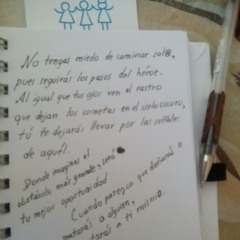 No tengas miedo de caminar sol@,
pues seguirás los pasos del héroe.
Al igual que tus ojos ven el rastro
que dejan los cometas en el cielo oscuro,
tú te dejarás llevar por las señales
de aquél.
Donde imaginas el
obstáculo más grande, será
tu mejor oportunidad.
(Cuando parezca que dañarás o
matarás a alguien,
matarás a ti mismo.